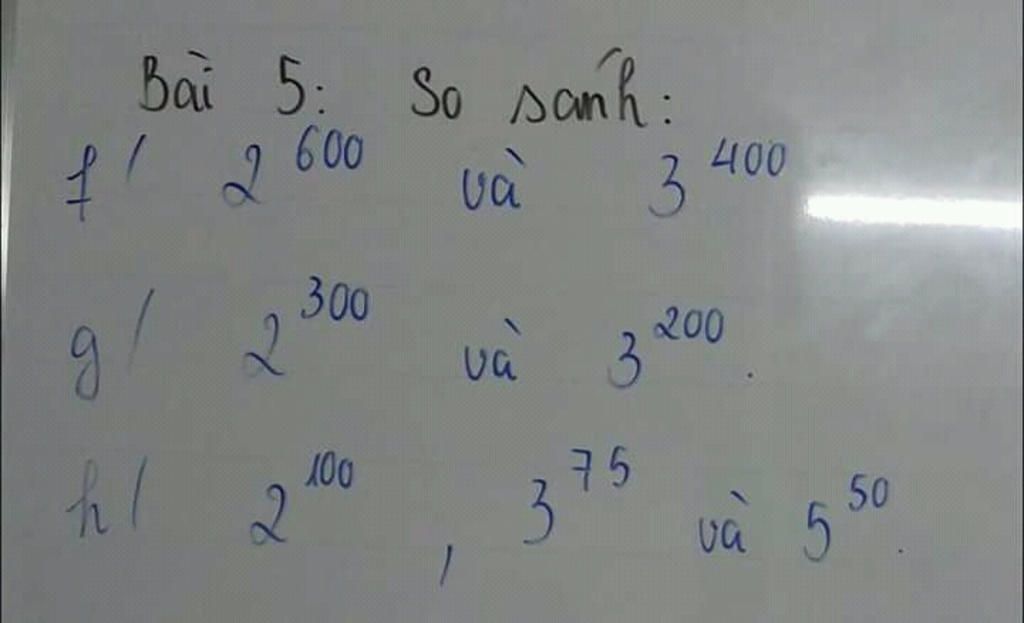 Bài 5: So sánh:
f/ 2^600 và 3^400
g/ 2^300 và 3^200.
h/ 2^100, 3^75 và 5^50.